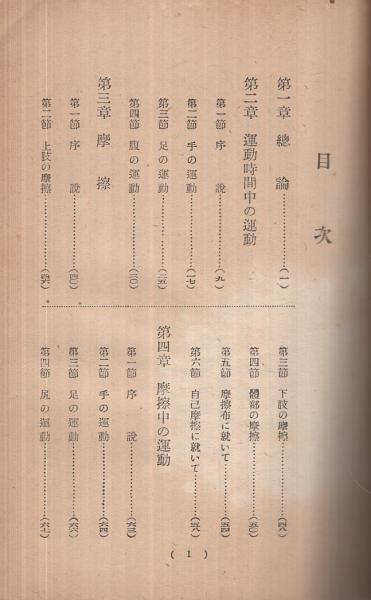 目次
第一章 總論…………(一)
第二章 運動時間中の運動
第一節 序説…………(九)
第二節 手の運動…………(一七)
第三節 足の運動…………(二五)
第四節 腹の運動…………(三〇)
第三章 摩擦
第一節 序説…………(四〇)
第二節 上肢の摩擦…………(四六)
第三節 下肢の摩擦…………(四八)
第四節 體部の摩擦…………(五〇)
第五節 摩擦布に就いて…………(五四)
第六節 自己摩擦に就いて…………(五八)
第四章 摩擦中の運動
第一節 序説…………(六三)
第二節 手の運動…………(六四)
第三節 足の運動…………(六六)
第四節 尻の運動…………(六七)
( 1 )